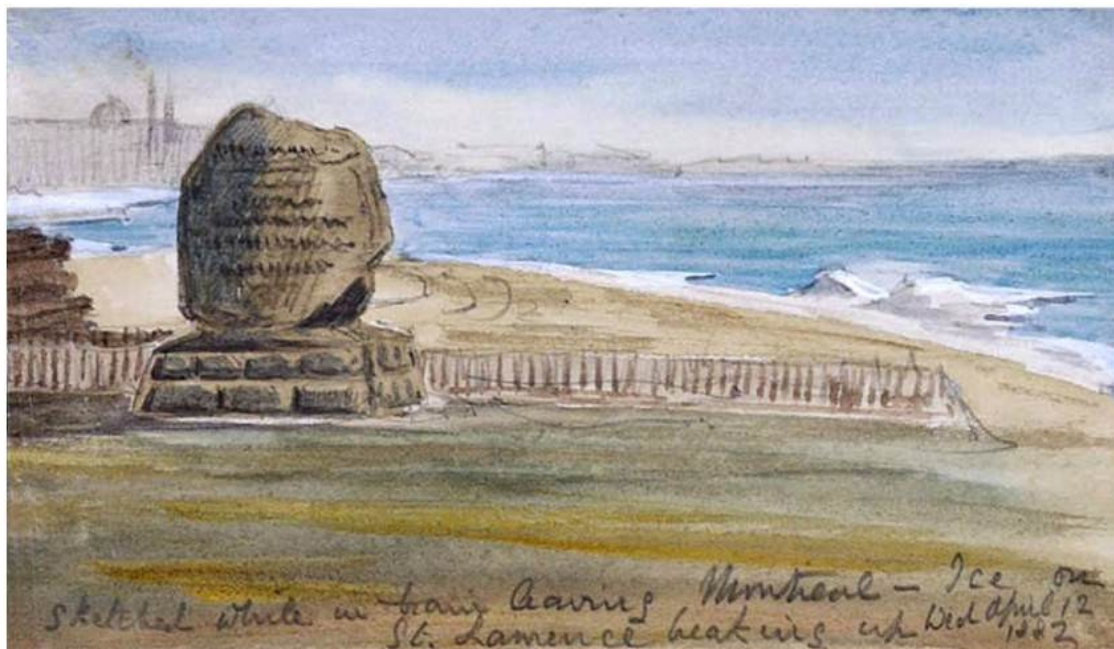 Sketched while in train leaving Montreal – Ice on
St. Lawrence breaking up Wed April 12
1882